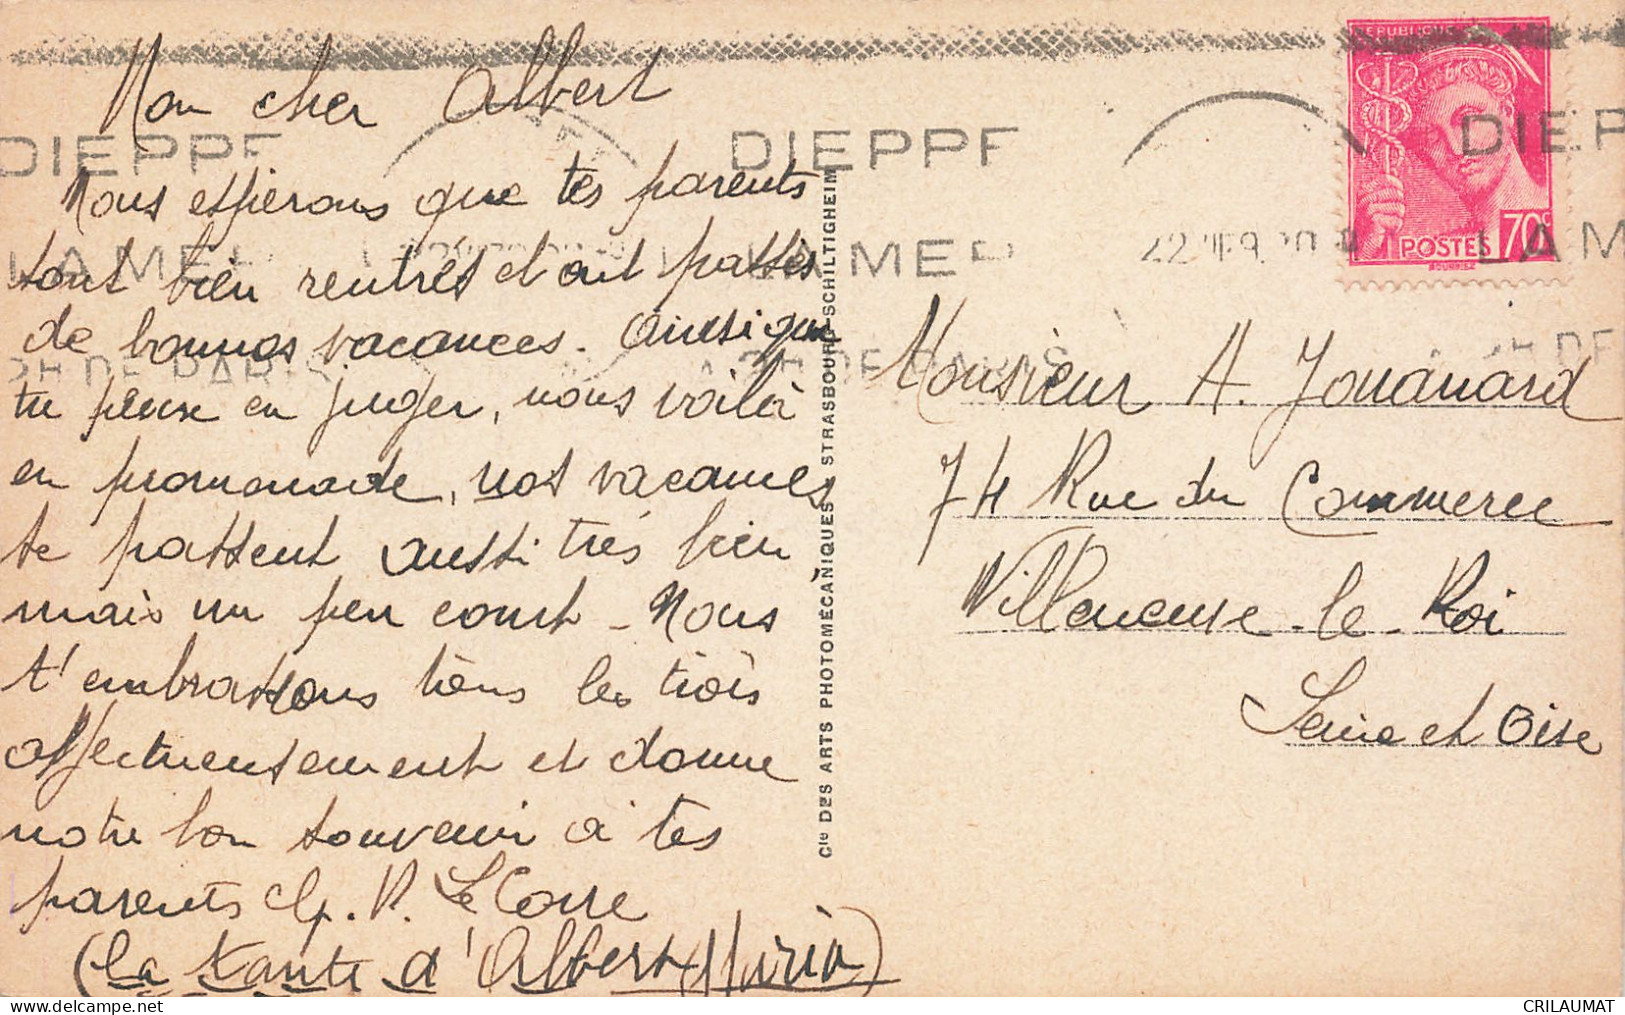 Mon cher Albert
Nous espérons que tes parents
sont bien rentrés et ont passés
de bonnes vacances. Ainsi que
tu peux en juger, nous voilà
en promenade, nos vacances
se passent aussi très bien
mais un peu court - Nous
t'embrassons tous les trois
affectueusement et donne
notre bon souvenir à tes
parents
R. Le Corre
(la tante d'Albert Maria)
Cie DES ARTS PHOTOMÉCANIQUES STRASBOURG-SCHILTIGHEIM
Monsieur A. Jouanard
74 Rue du Commerce
Villeneuse-le-Roi
Seine et Oise
DIEPPE
LA MER
DIEPPE
LA MER
DIEPP
LA M
2H DE PARIS
RÉPUBLIQUE
POSTES 70c
CRILAUMAT